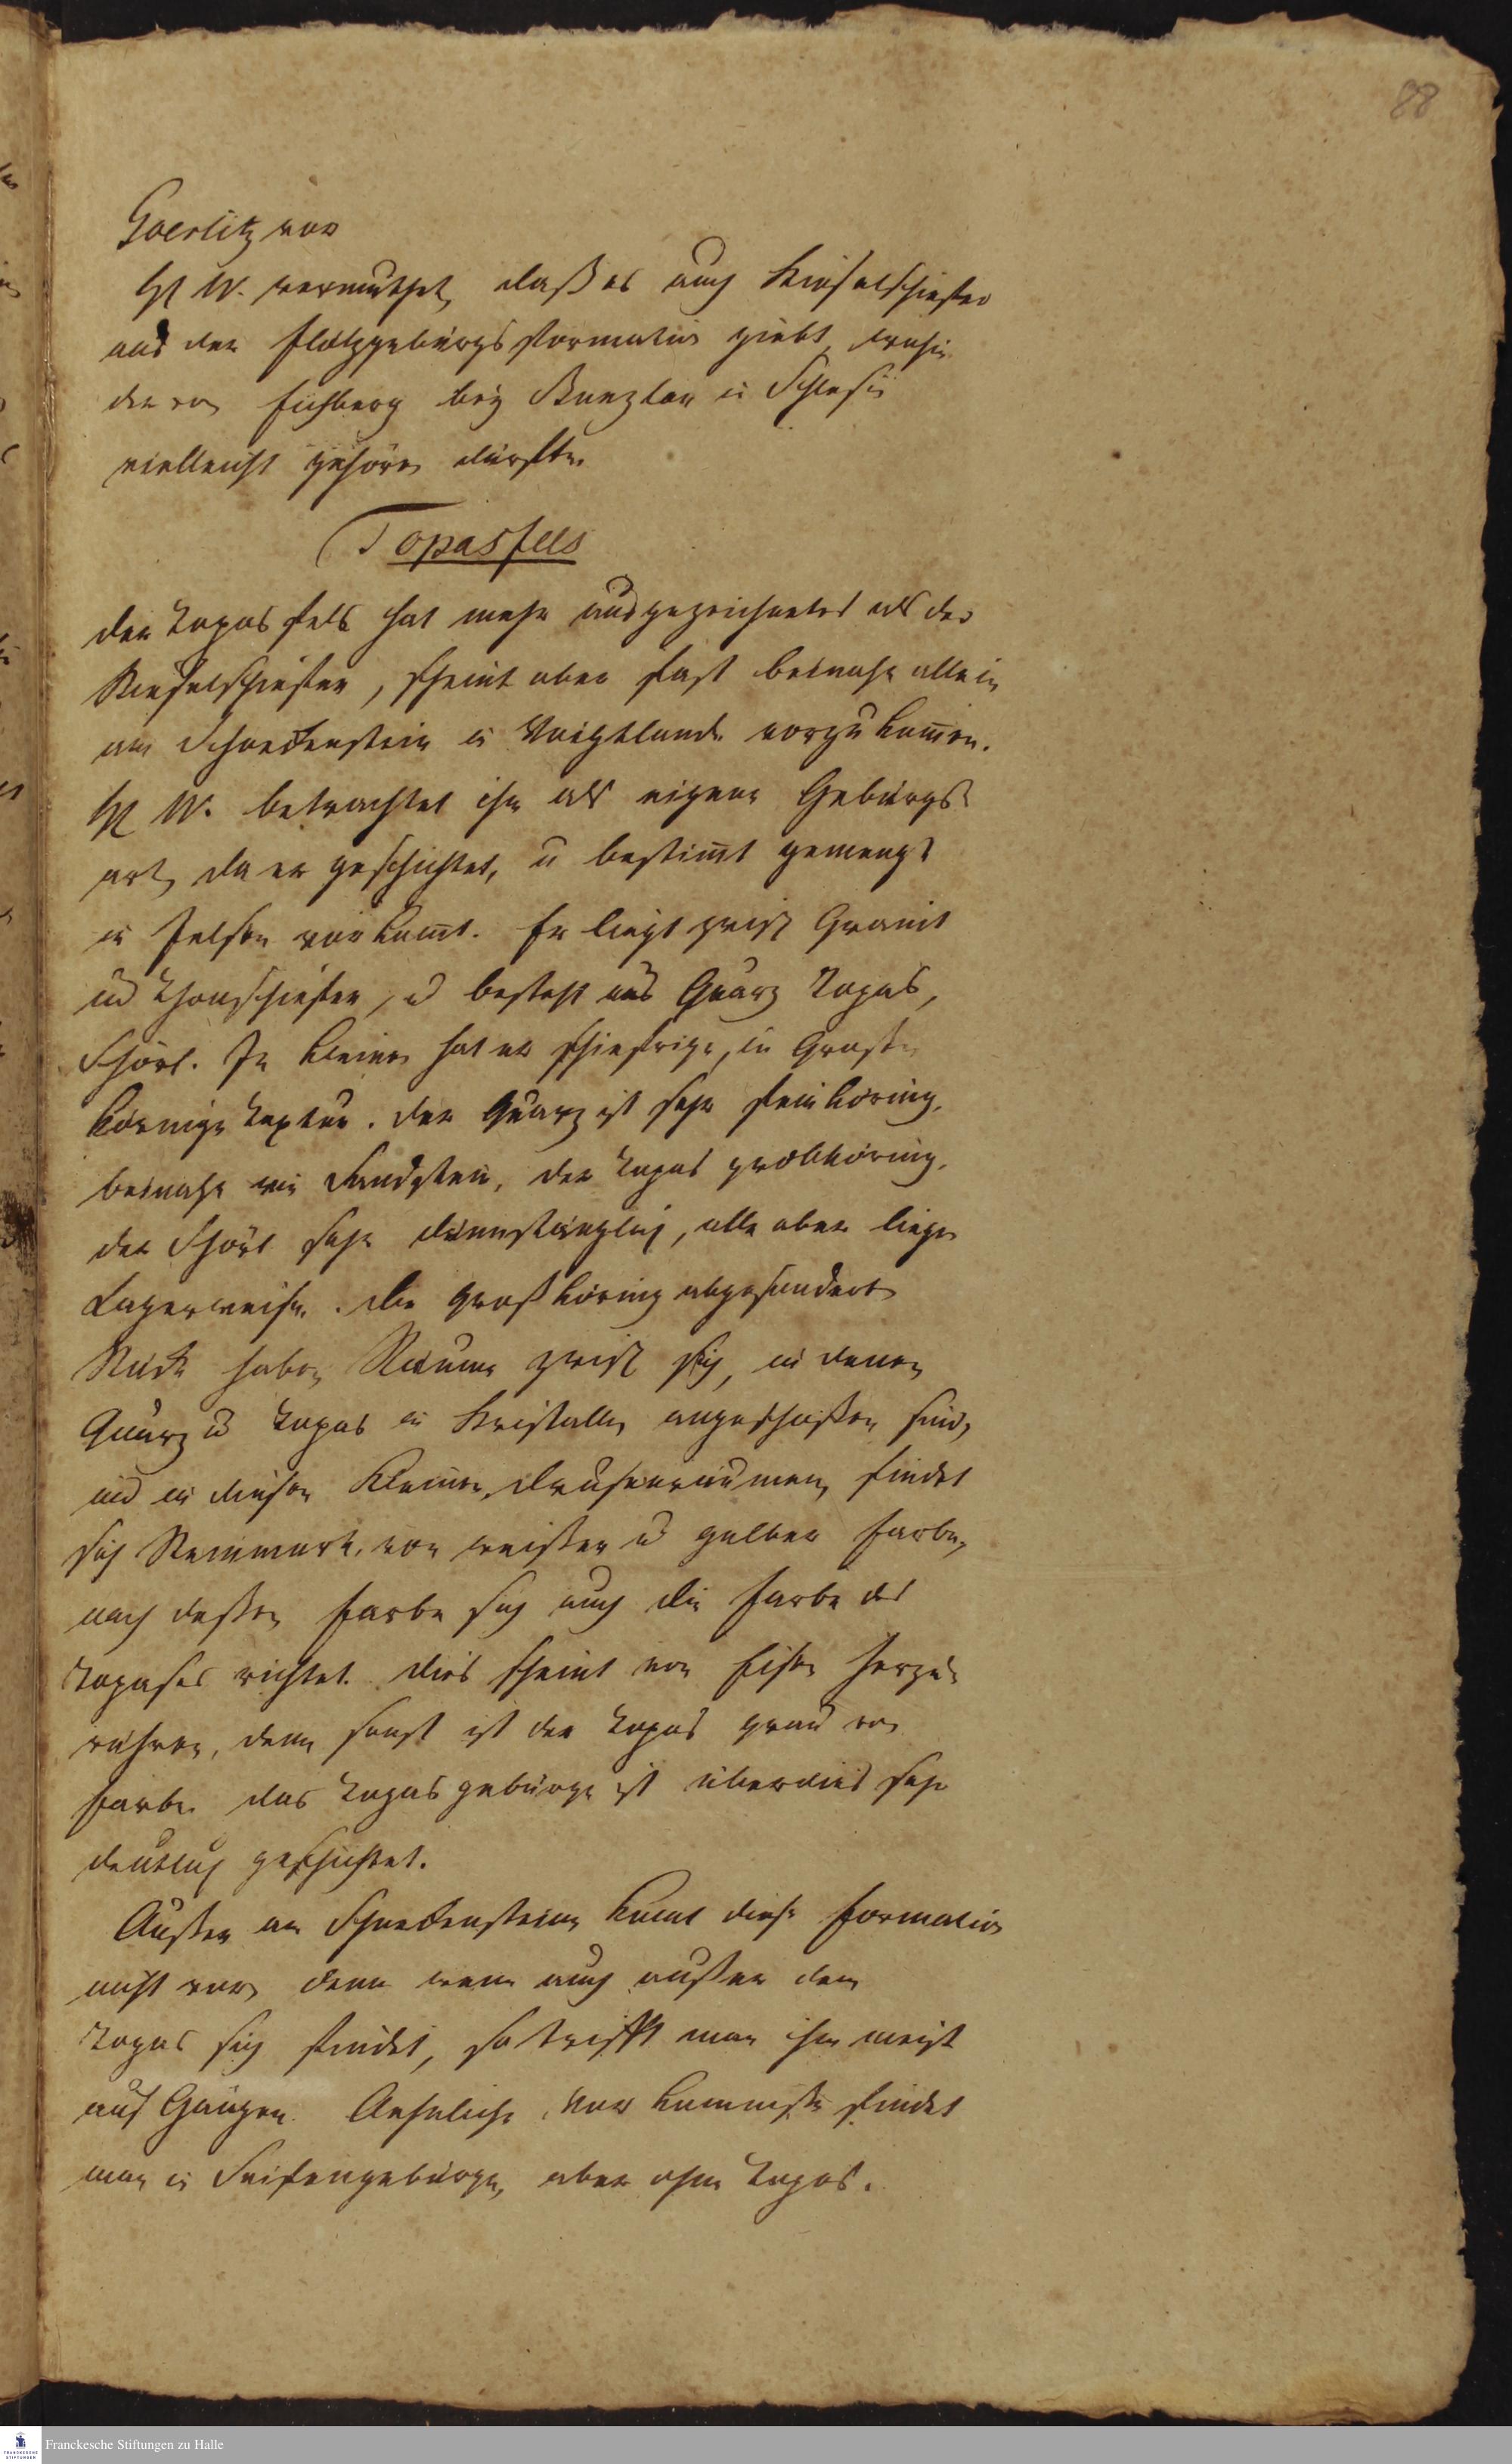 88
Goerlitz vor
H W. vermuthet, daß es auch Kieselschiefer
aus der Flötzgebürgsformation giebt, wohin
der vom Eichberg bey Bunzlau in Schlesien
vielleicht gehören dürfte.
Topasfels
der Topasfels hat mehr ausgezeichnetes als der
Kieselschiefer, scheint aber fast beinahe allein
am Schneckenstein in Voigtlande vorzukom̄en.
H W. betrachtet ihn als eigene Gebürgs
art, da er geschichtet, u bestim̄t gemengt
in Felsen vorkom̄t. Er liegt zwisch Granit
und Thonschiefer, u besteht aus Quarz Topas,
Schörl. Im kleinen hat er schiefrige, im Großen
körnige Textur. der Quarz ist sehr feinkörnig,
beinahe wie Sandstein, der Topas grobkörnig,
der Schörl sehr dünnstänglich, alle aber liegen
Lagerweise. die großkörnig abgesonderten
Stücke haben Räume zwisch sich, in denen
Quarz u Topas in Kristallen angeschoßen sind,
und in diesen kleinen Drusenräumen, findet
sich Steinmark, von weißer u gelber Farbe,
nach deßen Farbe sich auch die Farbe des
Topases richtet. dies scheint von Eisen herzu
rühren, denn sonst ist der Topas grau von
Farbe. das Topasgebürge ist überdies sehr
deutlich geschichtet.
Außer am Schneckensteine kom̄t diese Formation
nicht vor, denn wenn auch außer dem
Topas sich findet, so trifft man ihn meist
auf Gängen. Aehnliche Vorkommniße findet
man in Seifengebürge, aber ohne Topas.
Franckesche Stiftungen zu Halle